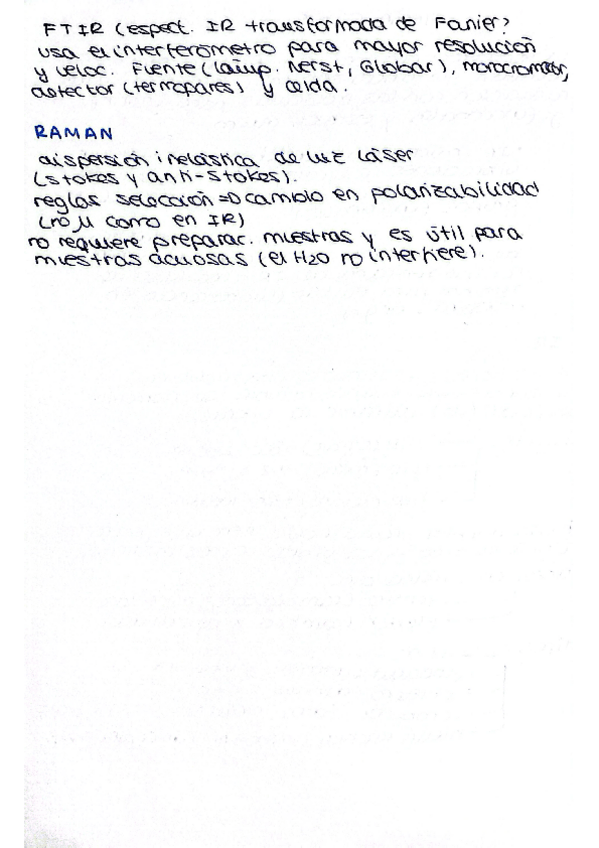 FTIR (espect. IR transformada de Fourier?
usa el interferómetro para mayor resolución
y veloc. Fuente (lámp. Nerst, Globar), monocromador,
detector (termopares) y celda.
RAMAN
dispersión inelástica de luz láser
(stokes y anti-stokes).
reglas selección => cambio en polarizabilidad
(no μ como en IR)
no requiere preparac. muestras y es útil para
muestras acuosas (el H2O no interfiere).